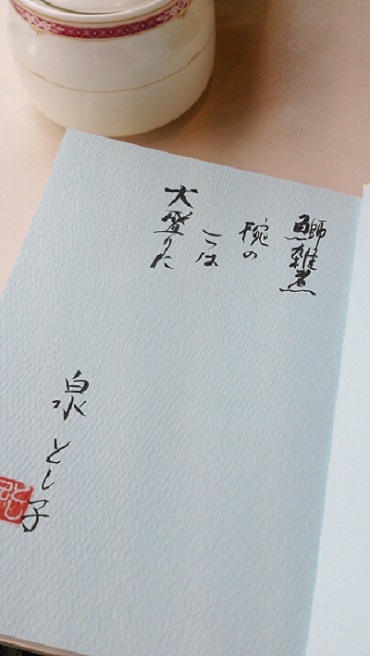 鰤雑煮
椀の
こは
大盛りた
泉 とし子
とし